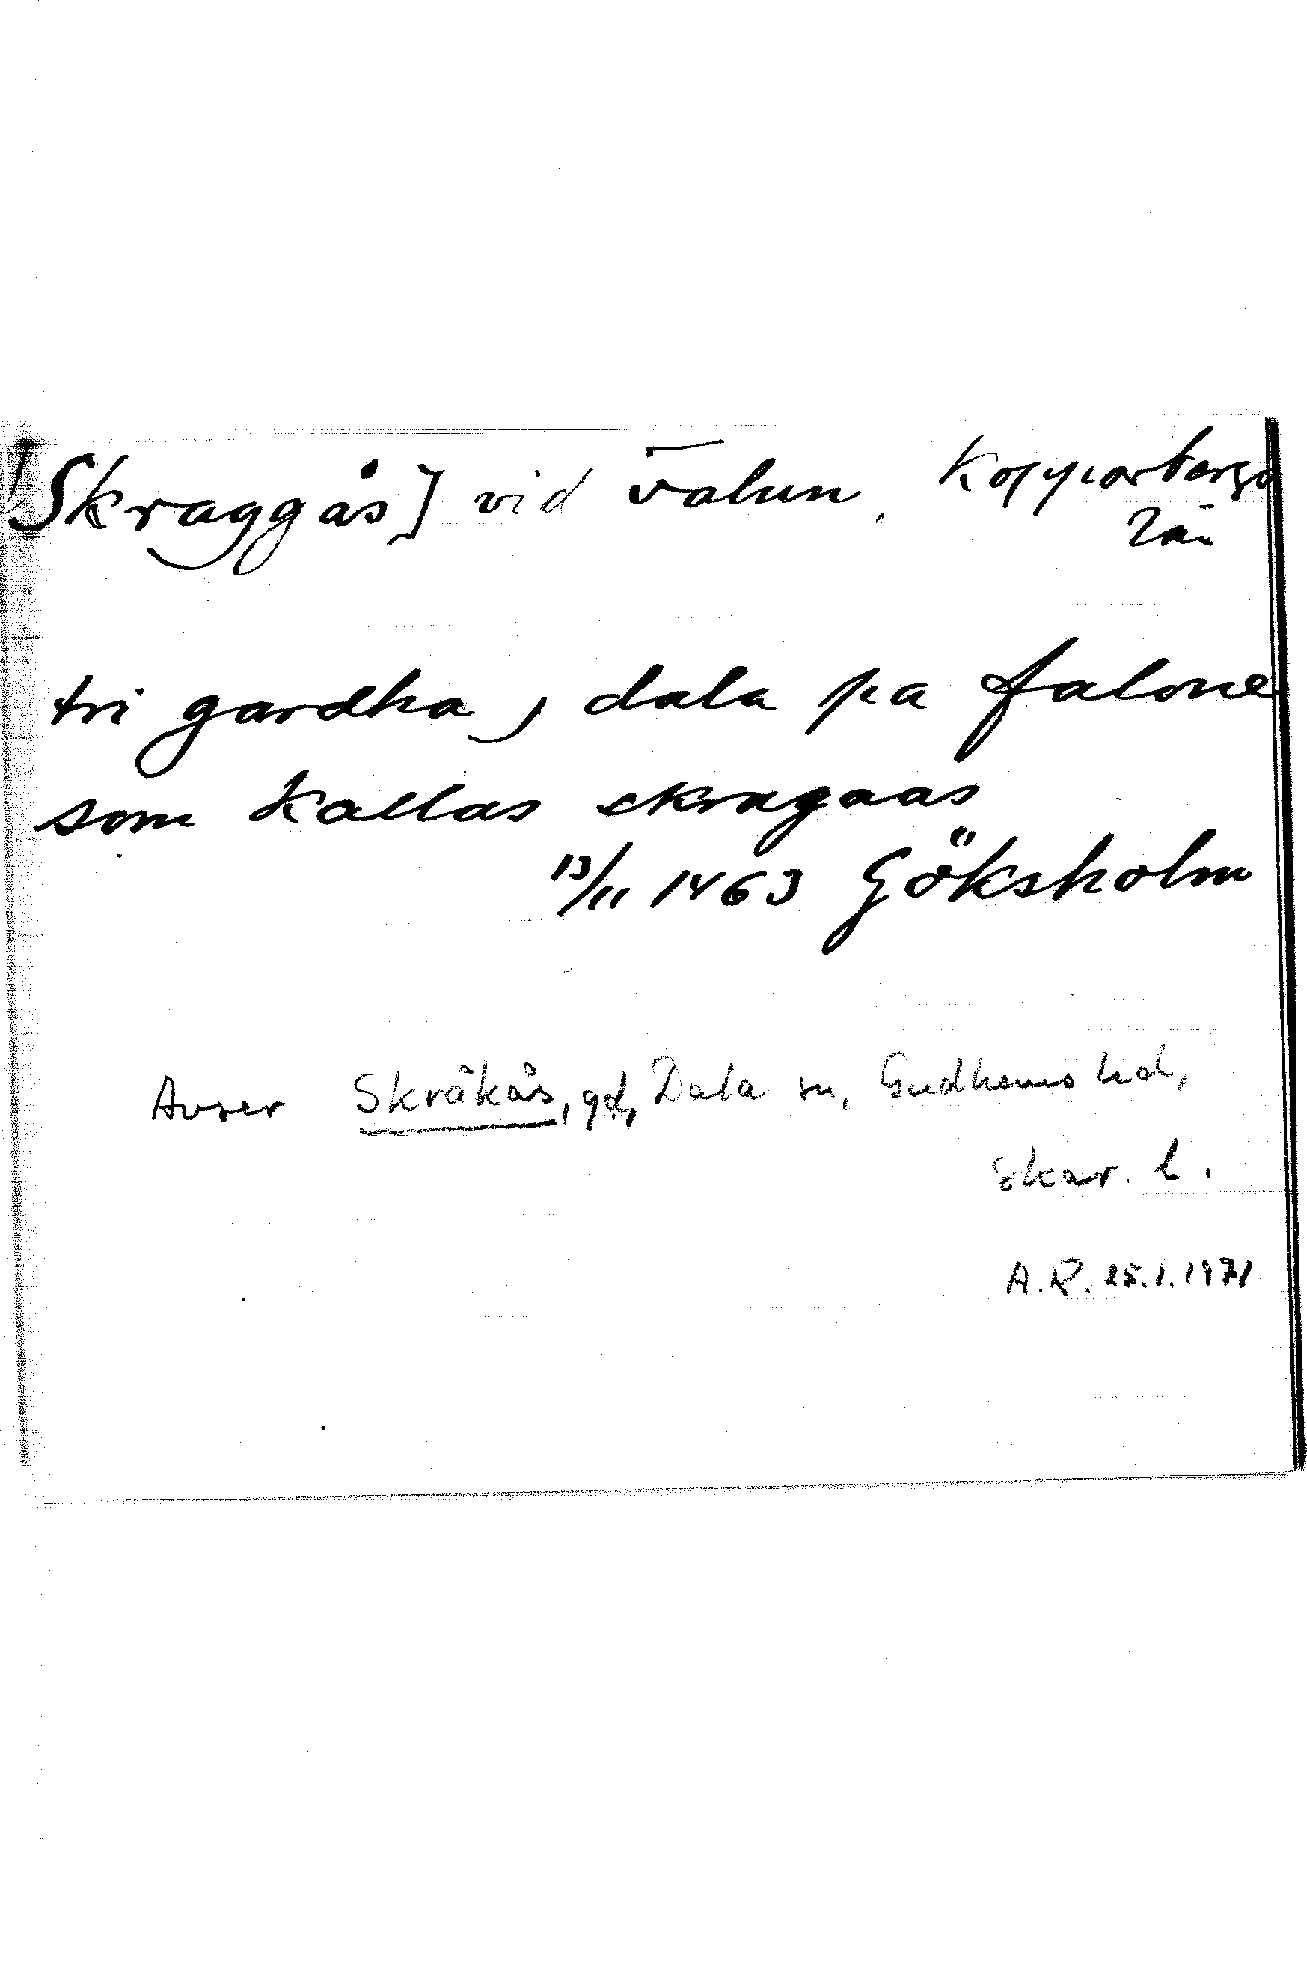 [Skraggås] vid Falun, Kopparbergs
län
tri gardha j dala pa falone
som kallas skragaas
13/11 1463 Göksholm
Avser Skråkås, gd, Dala sn, Gudhems hd,
Skar. l.
A.R. 25.1.1971